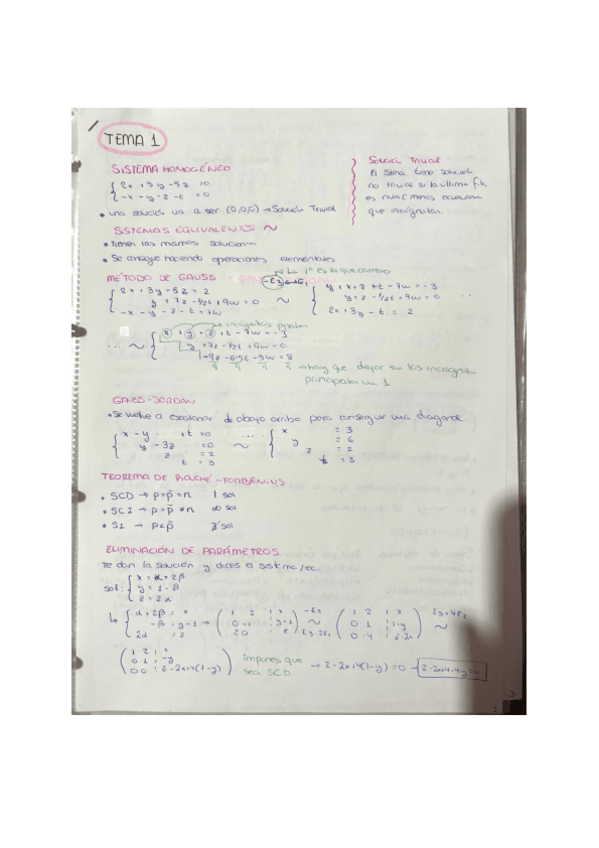 TEMA 1
SISTEMA HOMOGÉNEO
{ 2x + 3y - 5z = 0
{ -x - y - z - t = 0
• una solución va a ser (0,0,0) → Solución Trivial
Solución Trivial
El Stma tiene solución
no trivial si la última fila
es nula (menos ecuaciones
que incógnitas.
SISTEMAS EQUIVALENTES ~
• Tienen las mismas soluciones
• Se consigue haciendo operaciones elementales
MÉTODO DE GAUSS
la 1ª es la que cambio
{ 2x + 3y - 5z = 2
{ y + 7z - 1/2t + 9w = 0 ~
{ -x - y - z - t = 7w
y + x + z + t - 7w = -3
y + z - 1/2t + 9w = 0 ...
2x + 3y - t = 2
incógnitas principales
... ~ { x + y + z + t - 7w = -3
y + 7z - 1/2t + 9w = 0
→ hay que dejar en las incógnitas
principales un 1
GAUSS-JORDAN
• Se vuelve a escalonar de abajo arriba para conseguir una diagonal.
{ x - y + t = 0
y - 3z = 0
z = 2
t = 3
~ ... { x = 3
y = 6
z = 2
t = 3
TEOREMA DE ROUCHÉ-FORBENIUS
• SCD → p = p̃ = n 1 sol
• SCI → p = p̃ ≠ n ∞ sol
• SI → p < p̃ ∄ sol
ELIMINACIÓN DE PARÁMETROS
Te dan la solución y dices el sistema/ec.
sol: { x = α + 2β
y = 1 - β
z = 2α
↳ { α + 2β = x
-β = y - 1 →
2α = z
( 1 2 | x
0 -1 | y-1
2 0 | z ) -E2 ~ E3-2E1
( 1 2 | x
0 1 | 1-y
0 -4 | z-2x ) E3+4E2 ~
( 1 2 | x
0 1 | -y
0 0 | z-2x+4(1-y) )
impones que
sea SCD
→ z - 2x + 4(1-y) = 0 →
3